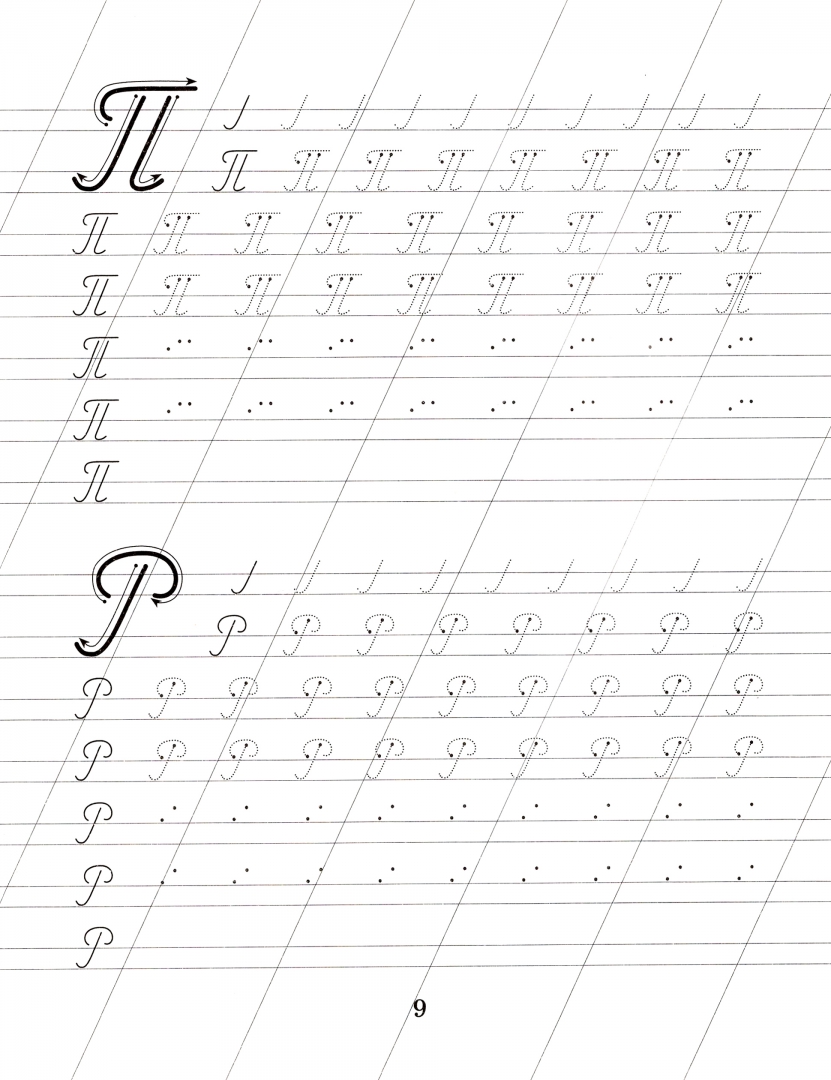 П
П П П П П П П П
П П П П П П П П П
П П П П П П П П П
П
П
П
Р
Р Р Р Р Р Р Р Р
Р Р Р Р Р Р Р Р Р Р
Р Р Р Р Р Р Р Р Р Р
Р
Р
Р
9